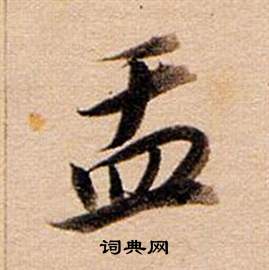 盂
词典网